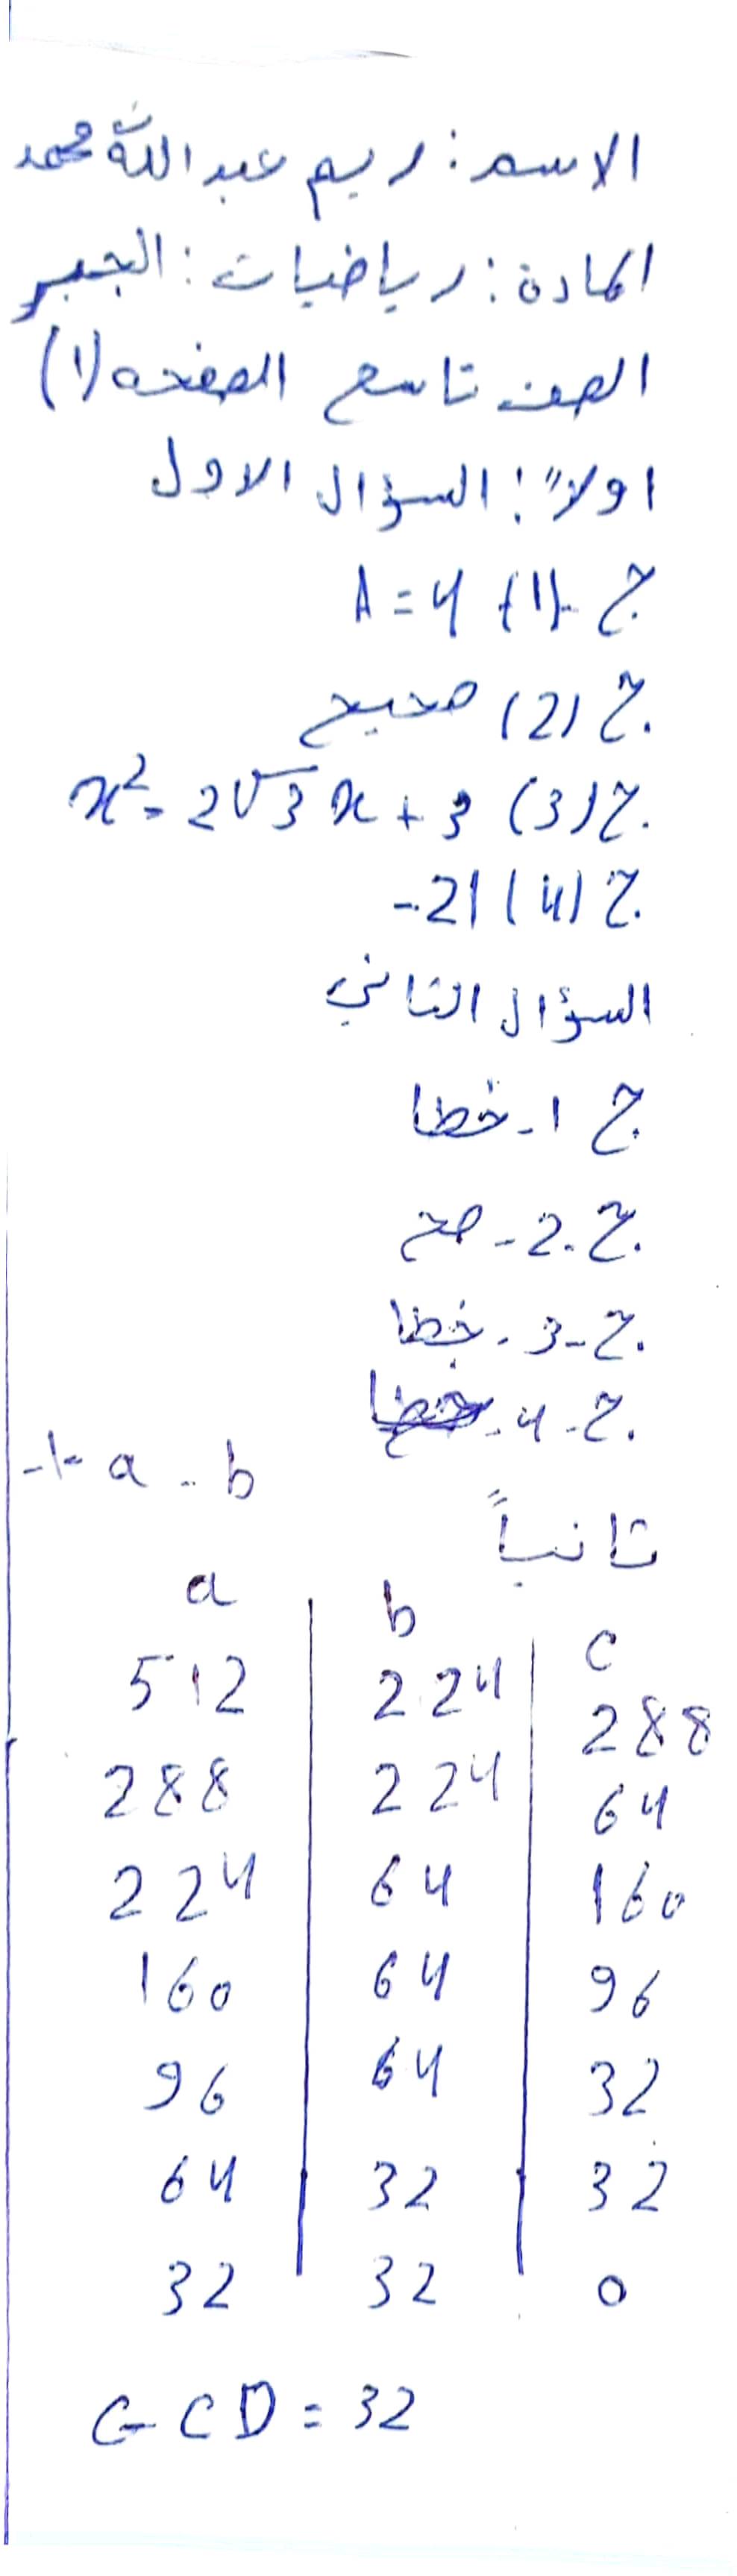 الاسم : ريم عبد الله محمد
المادة : رياضيات : الجبر
الصف تاسع الصفحه (1)
اولاً : السؤال الاول
ج (1) A = 4
ج (2) صحيح
ج (3) x² - 2√3 x + 3
ج (4) -21
السؤال الثاني
ج 1 - خطا
ج - 2 - صح
ج - 3 - خطا
ج - 4 -
-1- a - b
ثانياً
a b c
512 224 288
288 224 64
224 64 160
160 64 96
96 64 32
64 32 32
32 32 0
GCD = 32